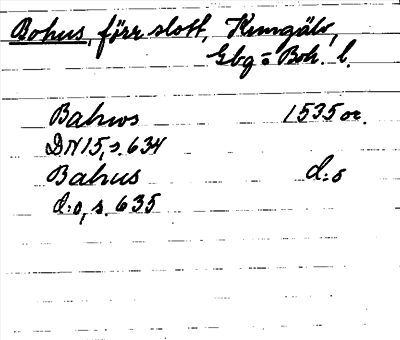 Bohus, förr slott, Kungälv,
Gbg = Boh. l.
Bahws 1535 or.
DN 15, s. 634
Bahus d:o
d:o, s. 635